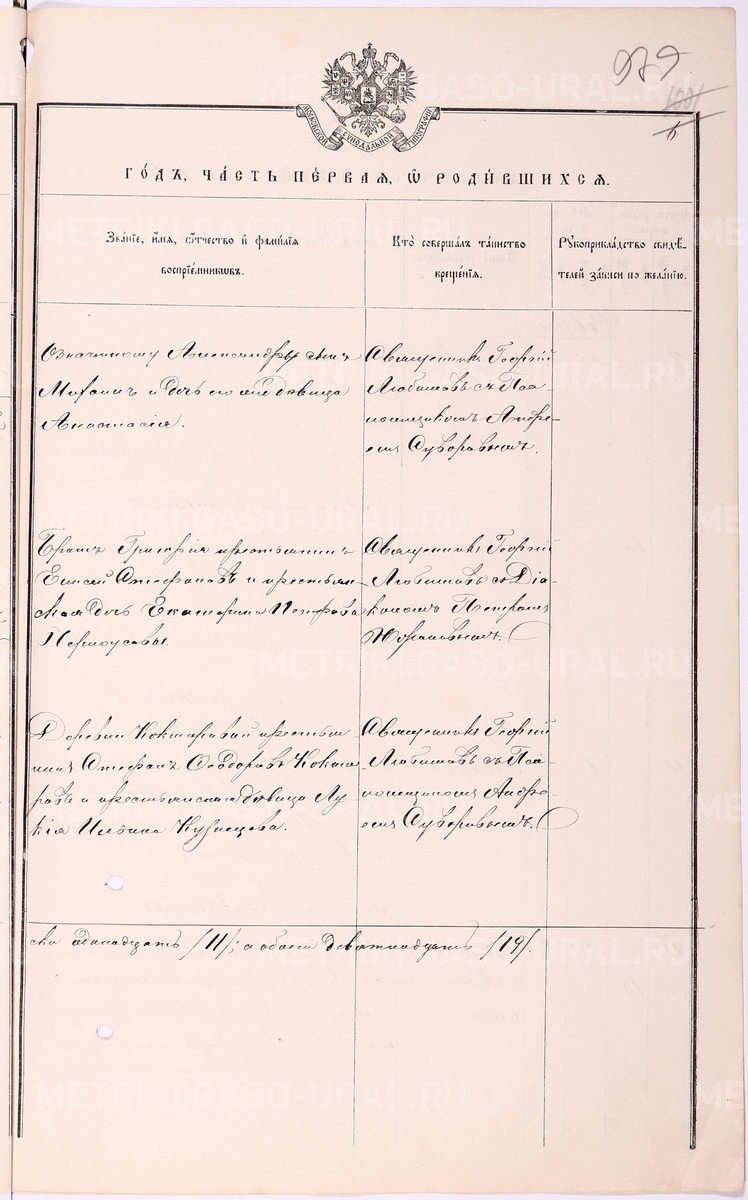 979
1001
МОСКОВСКОЙ СѴНОДАЛЬНОЙ ТИПОГРАФІИ
ГО́ДЪ, ЧА́СТЬ ПЕ́РВАЯ, Ѡ РОДИ́ВШИХСЯ.
Зва́ніе, и́мя, ѻ́тчество и҆ фами́лія
воспріе́мниковъ.
Кто̀ соверша́лъ та́инство
креще́нія.
Рꙋкоприкла́дство свидѣ́-
телей за́писи по жела́нію.
Александръ
и дочь его дѣвица
Анастасія.
Священникъ Георгій
Любимовъ съ Пса-
ломщикомъ Андре-
емъ Суворовымъ.
Братъ Григорія крестьянинъ
Елисей Стефановъ и крестьян-
ская дочь Екатерина Петрова
Священникъ Георгій
Любимовъ съ Діа-
кономъ Петромъ
Деревни Кокшаровой крестья-
нинъ Стефанъ Ѳеодоровъ Кокша-
ровъ и крестьянская дѣвица Лу-
кія Ильина Кузнецова.
Священникъ Георгій
Любимовъ съ Пса-
ломщикомъ Андре-
емъ Суворовымъ.
ска одинадцать /11/; а обоего девятнадцать /19/.
METRIKI.GASO-URAL.RU